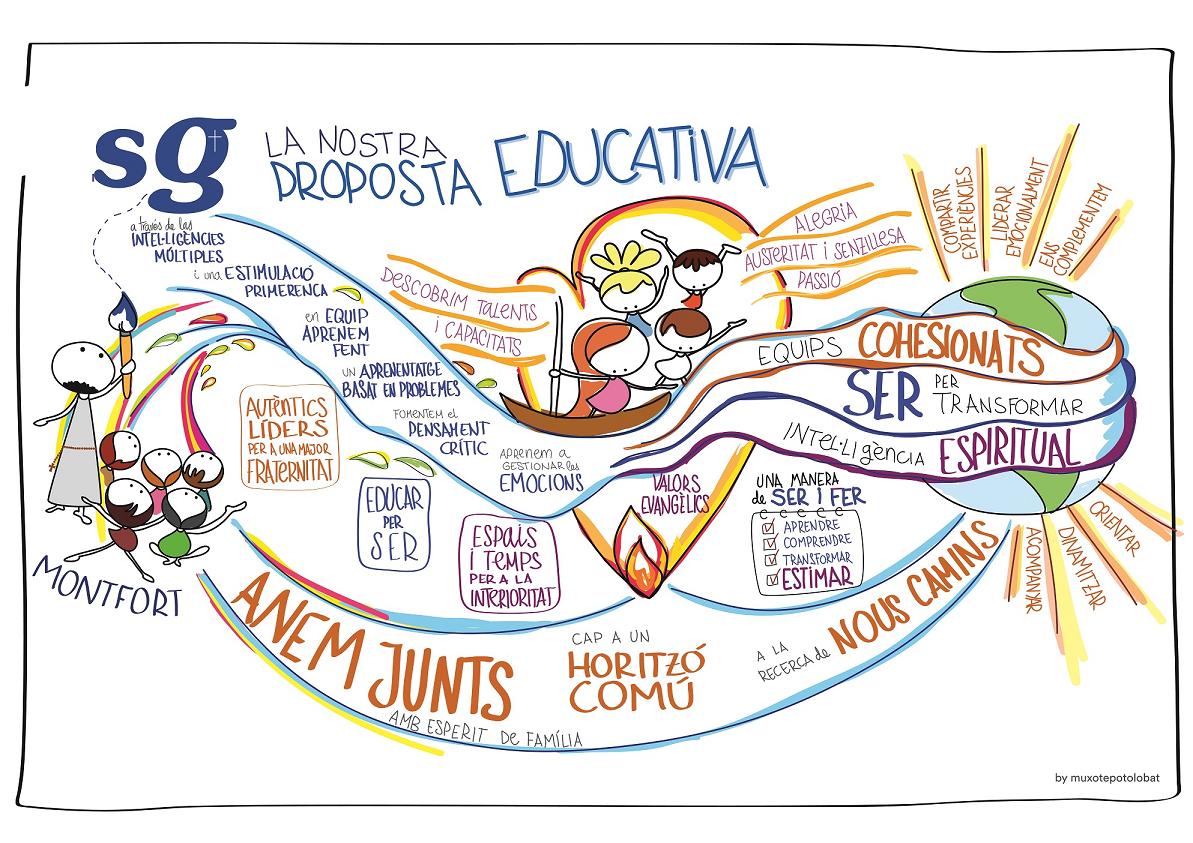 sg
LA NOSTRA
PROPOSTA EDUCATIVA
a través de les
INTEL·LIGÈNCIES
MÚLTIPLES
i una ESTIMULACIÓ
PRIMERENCA
en EQUIP
APRENEM
FENT
UN APRENENTATGE
BASAT EN PROBLEMES
FOMENTEM el
PENSAMENT
CRÍTIC
APRENEM A
GESTIONAR les
EMOCIONS
DESCOBRIM TALENTS
i CAPACITATS
ALEGRIA
AUSTERITAT i SENZILLESA
PASSIÓ
COMPARTIR
EXPERIÈNCIES
LIDERAR
EMOCIONALMENT
ENS
COMPLEMENTEM
EQUIPS COHESIONATS
SER PER
TRANSFORMAR
INTEL·LIGÈNCIA ESPIRITUAL
AUTÈNTICS
LÍDERS
PER A UNA MAJOR
FRATERNITAT
EDUCAR
PER
SER
ESPAIS
i TEMPS
PER A LA
INTERIORITAT
VALORS
EVANGÈLICS
UNA MANERA
de SER i FER
APRENDRE
COMPRENDRE
TRANSFORMAR
ESTIMAR
ACOMPANYAR
DINAMITZAR
ORIENTAR
MONTFORT
ANEM JUNTS
AMB ESPERIT de FAMÍLIA
CAP A UN
HORITZÓ
COMÚ
A LA
RECERCA de NOUS CAMINS
by muxotepotolobat